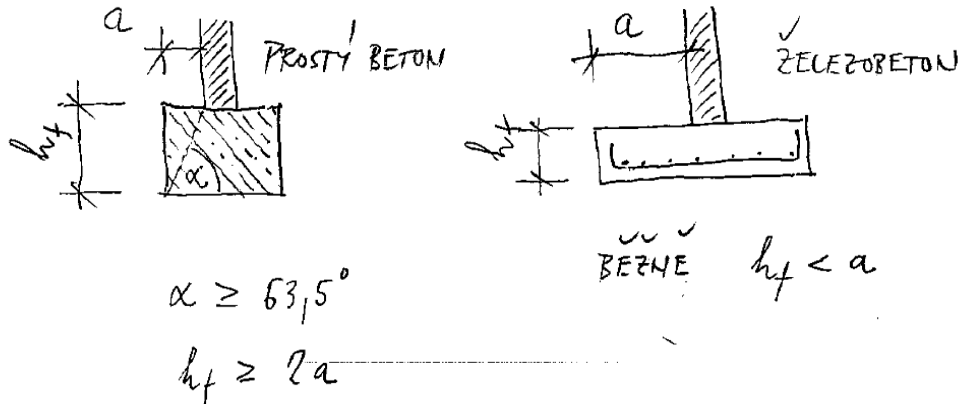 a
PROSTÝ BETON
h_f
α
α ≥ 63,5°
h_f ≥ 2a
a
ŽELEZOBETON
h_f
BĚŽNĚ h_f < a